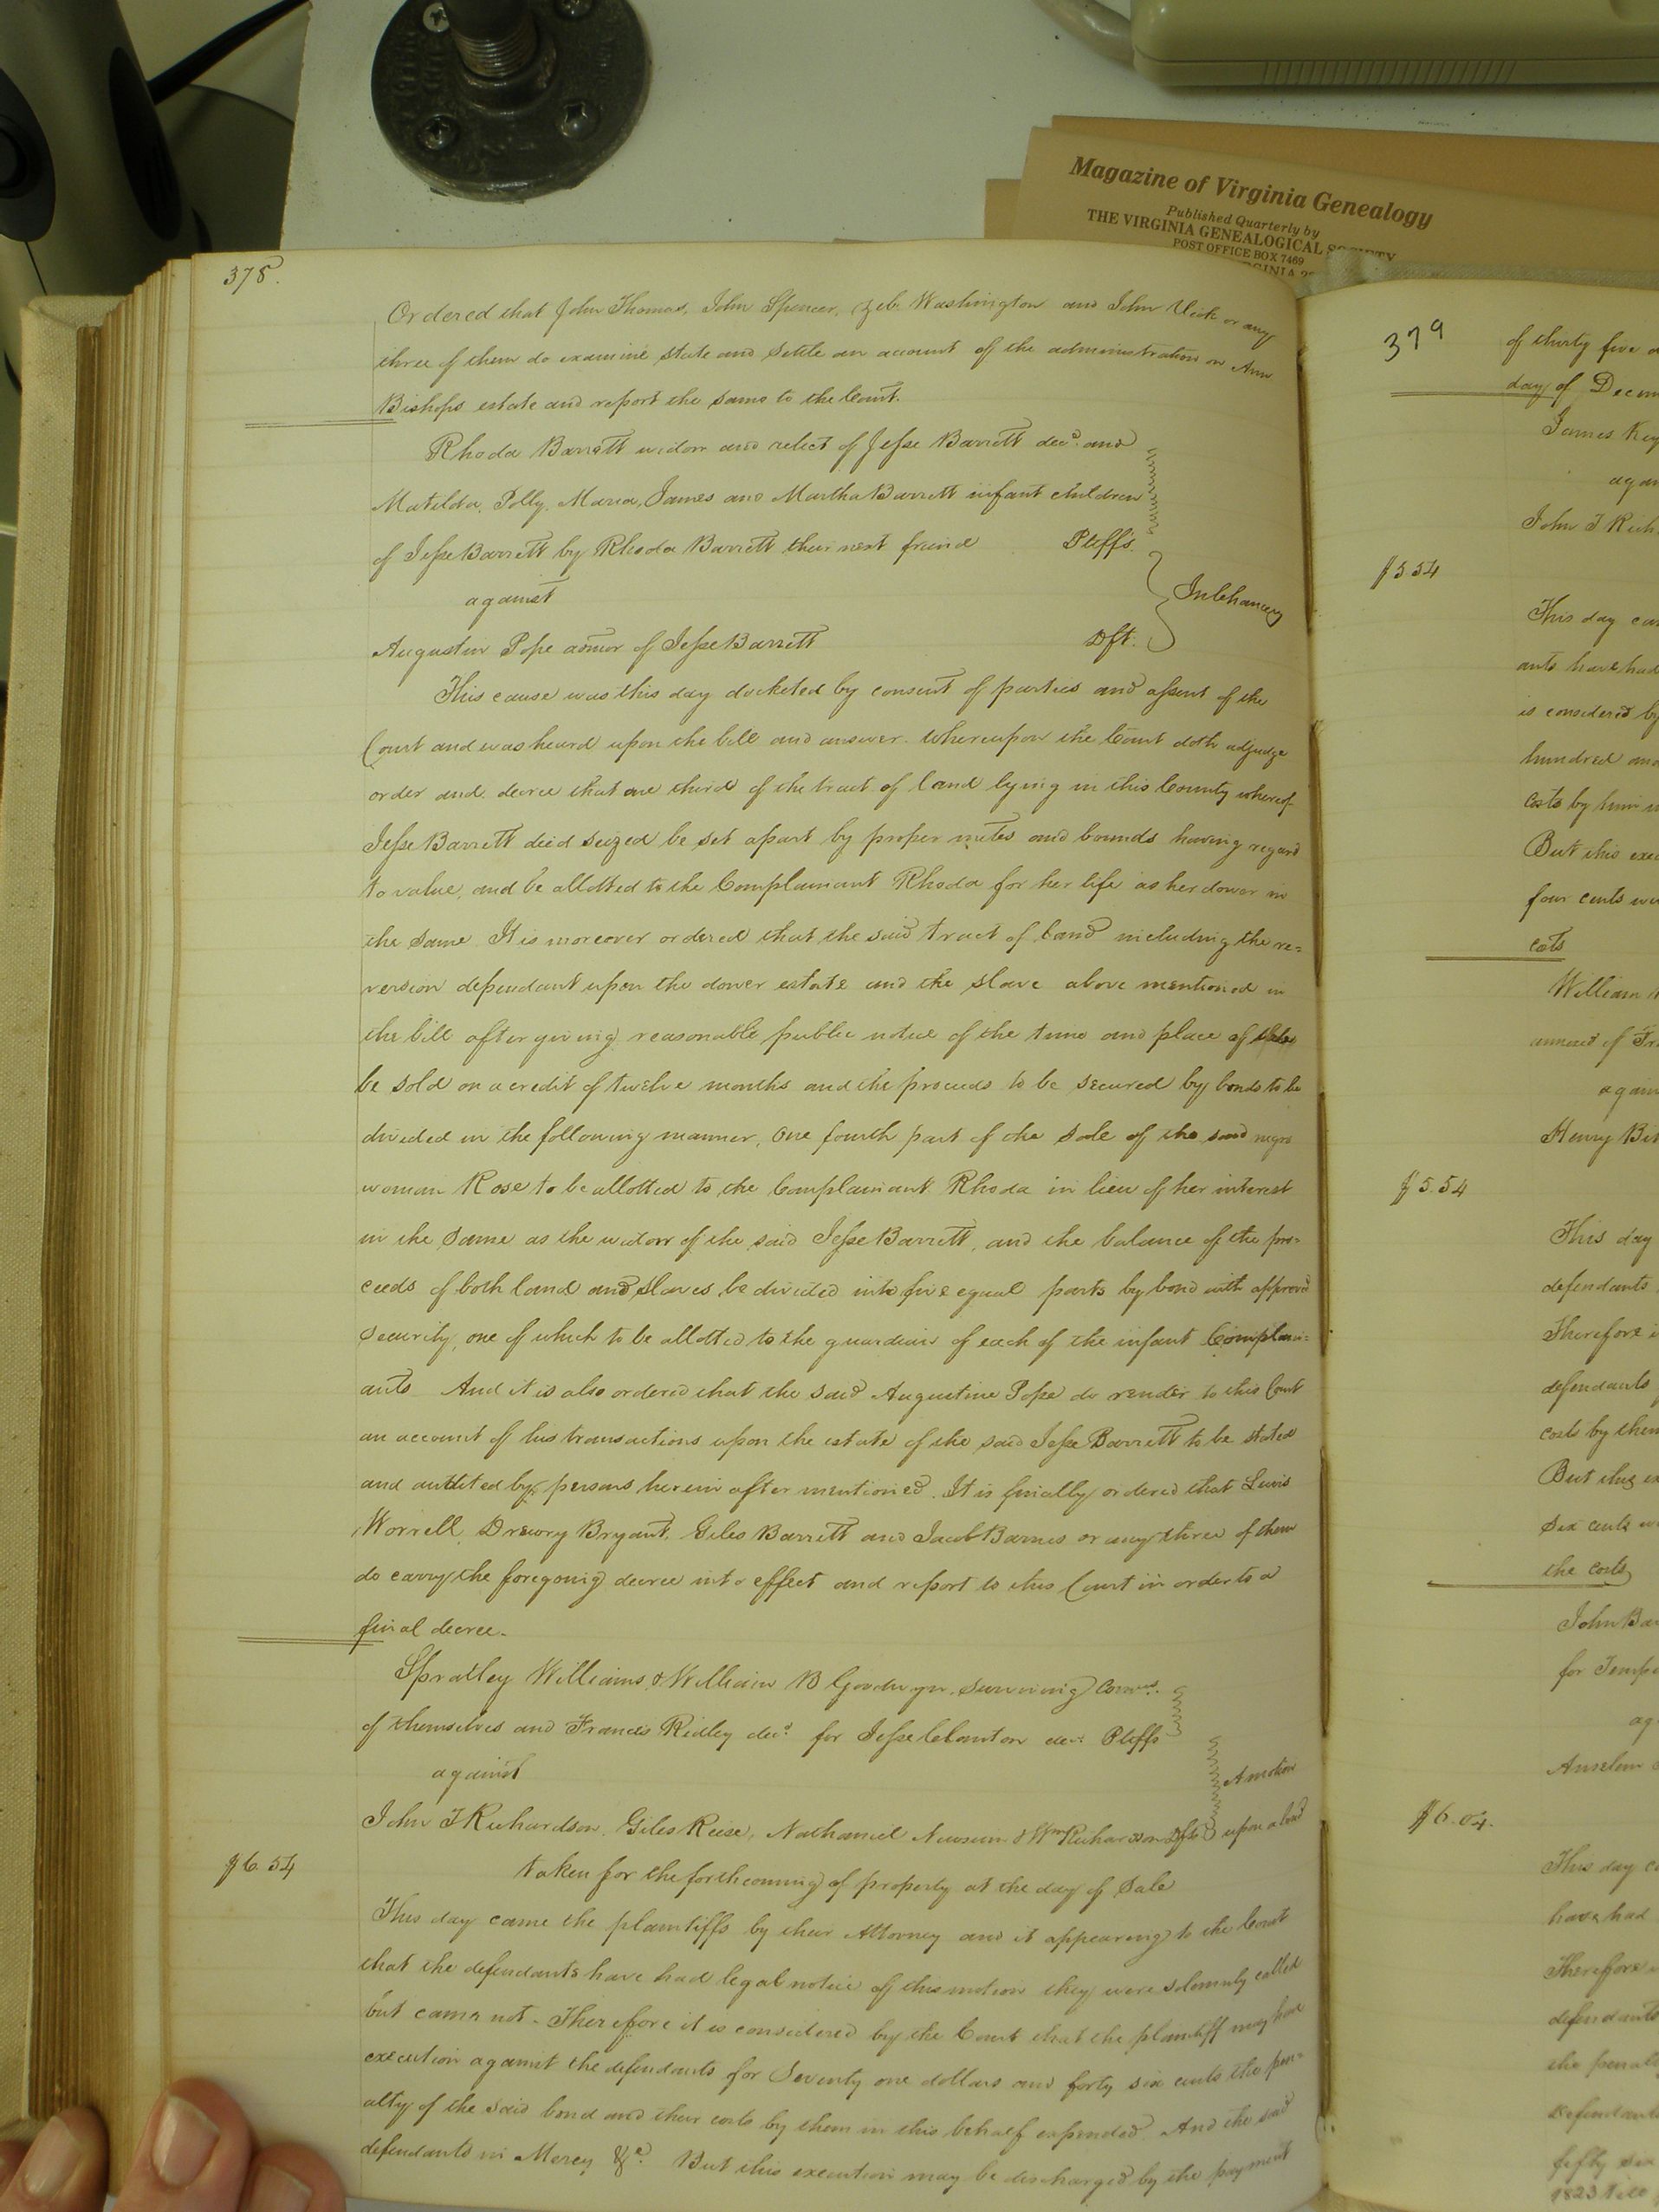 Magazine of Virginia Genealogy
Published Quarterly by
THE VIRGINIA GENEALOGICAL SOCIETY
POST OFFICE BOX 7469
378.
Ordered that John Thomas, John Spencer, Zeb. Washington and John Vick or any
three of them do examine state and settle an account of the administration on Ann
Bishops estate and report the same to the Court.
Rhoda Barrett widow and relict of Jesse Barrett decd. and
Matilda, Polly, Maria, James and Martha Barrett infant children
of Jesse Barrett by Rhoda Barrett their next freind Pltffs.
against
In Chancery
Augustin Pope admor of Jesse Barrett Dft.
This cause was this day docketed by consent of parties and assent of the
Court and was heard upon the bill and answer. Whereupon the Court doth adjudge
order and decree that one third of the tract of land lying in this County whereof
Jesse Barrett died seized be set apart by proper metes and bounds having regard
to value, and be allotted to the Complainant Rhoda for her life as her dower in
the same. It is moreover ordered that the said tract of land including the re=
version dependant upon the dower estate and the slave above mentioned in
the bill after giving reasonable public notice of the time and place of
be sold on a credit of twelve months and the proceeds to be secured by bonds to be
divided in the following manner, One fourth part of the sale of the said negro
woman Rose to be allotted to the Complainant Rhoda in lieu of her interest
in the same as the widow of the said Jesse Barrett, and the balance of the pro=
ceeds of both land and slaves be divided into five equal parts by bond with approved
security, one of which to be allotted to the guardian of each of the infant Complain=
ants And it is also ordered that the said Augustine Pope do render to this Court
an account of his transactions upon the estate of the said Jesse Barrett to be stated
and audited by persons herein after mentioned. It is finally ordered that Lewis
Worrell, Drewry Bryant, Giles Barrett and Jacob Barnes or any three of them
do carry the foregoing decree into effect and report to this Court in order to a
final decree.
Spratley Williams & William B Goodwyn surviving Comrs.
of themselves and Francis Ridley decd. for Jesse Clanton decd. Pltffs
against
A motion
John T Richardson, Giles Reese, Nathaniel Newsum & Wm Richardson Dfts upon a bond
$6.54
taken for the forthcoming of property at the day of Sale
This day came the plaintiffs by their Attorney and it appearing to the Court
that the defendants have had legal notice of this motion they were solemnly called
but came not. Therefore it is considered by the Court that the plaintiff may have
execution against the defendants for Seventy one dollars and forty six cents the pen=
alty of the said bond and their costs by them in this behalf expended. And the said
defendants in Mercy &c. But this execution may be discharged by the payment
379
of thirty five
day of
James
John T
$5.54
This day
ants have had
is considered by
hundred and
costs by him
But this
four cents
costs
William
Henry
$5.54
This day
defendants
Therefore
defendants
costs by them
But this
six cents
the costs
John
for
Anselm
$6.04.
This day
have had
Therefore
defendants
the
defendants
fifty six
1823